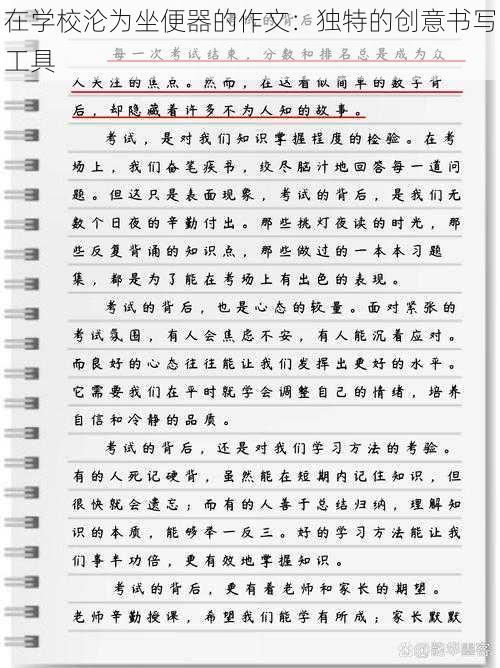 在学校沦为坐便器的作文：独特的创意书写
工具
每一次考试结束，分数和排名总是成为众
人关注的焦点。然而，在这看似简单的数字背
后，却隐藏着许多不为人知的故事。
考试，是对我们知识掌握程度的检验。在考
场上，我们奋笔疾书，绞尽脑汁地回答每一道问
题。但这只是表面现象，考试的背后，是我们无
数个日夜的辛勤付出。那些挑灯夜读的时光，那
些反复背诵的知识点，那些做过的一本本习题
集，都是为了能在考场上有出色的表现。
考试的背后，也是心态的较量。面对紧张的
考试氛围，有人会焦虑不安，有人能沉着应对。
而良好的心态往往能让我们发挥出更好的水平。
它需要我们在平时就学会调整自己的情绪，培养
自信和冷静的品质。
考试的背后，还是对我们学习方法的考验。
有的人死记硬背，虽然能在短期内记住知识，但
很快就会遗忘；而有的人善于总结归纳，理解知
识的本质，能够举一反三。好的学习方法能让我
们事半功倍，更有效地掌握知识。
考试的背后，更有着老师和家长的期望。
老师辛勤授课，希望我们能学有所成；家长默默